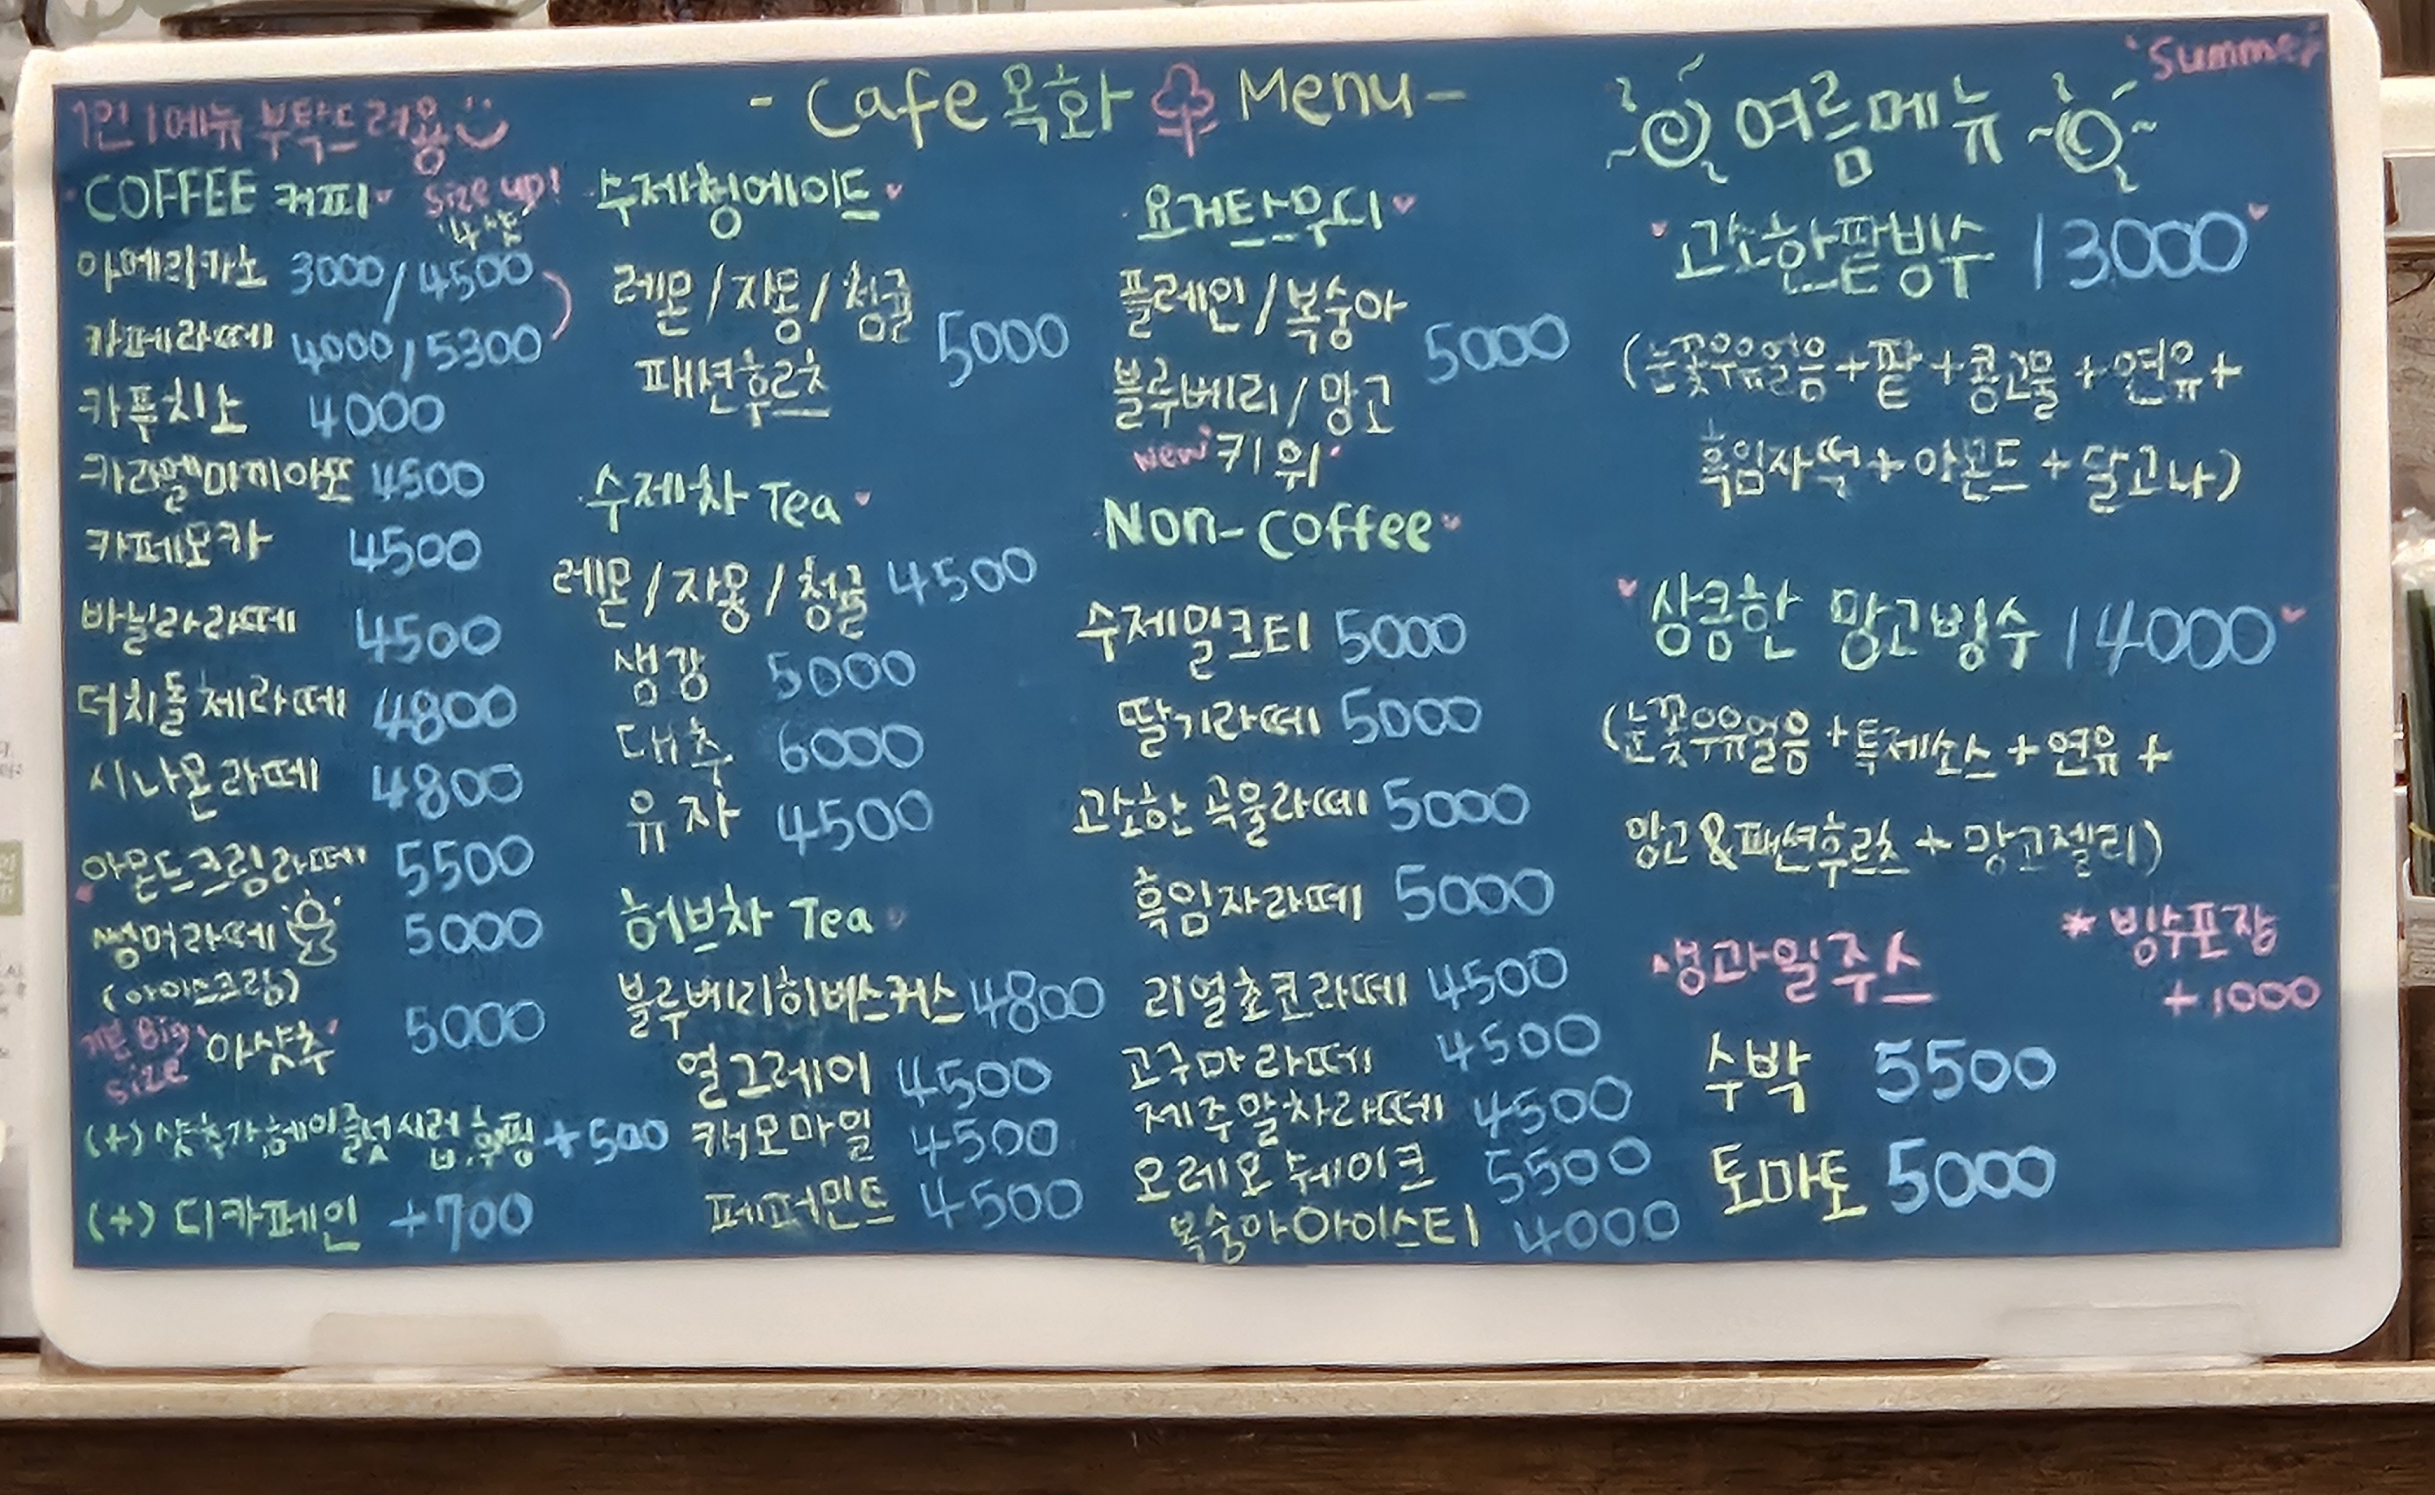 - Cafe 목화 Menu -
1인 1메뉴 부탁드려용
COFFEE 커피
size up!
'4샷'
아메리카노 3000/4500
카페라떼 4000/5300
카푸치노 4000
카라멜마끼아또 4500
카페모카 4500
바닐라라떼 4500
더치돌체라떼 4800
시나몬라떼 4800
아몬드크림라떼 5500
썸머라떼 5000
(아이스크림)
기본 Big size '아샷추' 5000
(+) 샷추가,헤이즐넛시럽,휘핑 +500
(+) 디카페인 +700
수제청에이드
레몬/자몽/청귤
패션후르츠 5000
수제차 Tea
레몬/자몽/청귤 4500
생강 5000
대추 6000
유자 4500
허브차 Tea
블루베리히비스커스 4800
얼그레이 4500
캐모마일 4500
페퍼민트 4500
요거트스무디
플레인/복숭아
블루베리/망고 5000
New '키위'
Non-Coffee
수제밀크티 5000
딸기라떼 5000
고소한 곡물라떼 5000
흑임자라떼 5000
리얼초코라떼 4500
고구마라떼 4500
제주말차라떼 4500
오레오쉐이크 5500
복숭아아이스티 4000
'Summer'
여름메뉴
고소한팥빙수 13000
(눈꽃우유얼음+팥+콩고물+연유+
흑임자떡+아몬드+달고나)
상큼한 망고빙수 14000
(눈꽃우유얼음+특제소스+연유+
망고&패션후르츠+망고젤리)
* 빙수포장
+1000
생과일주스
수박 5500
토마토 5000